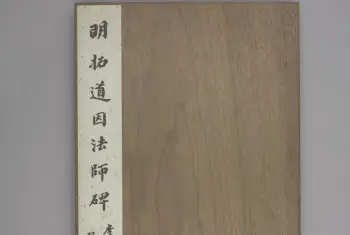 明拓道因法師碑